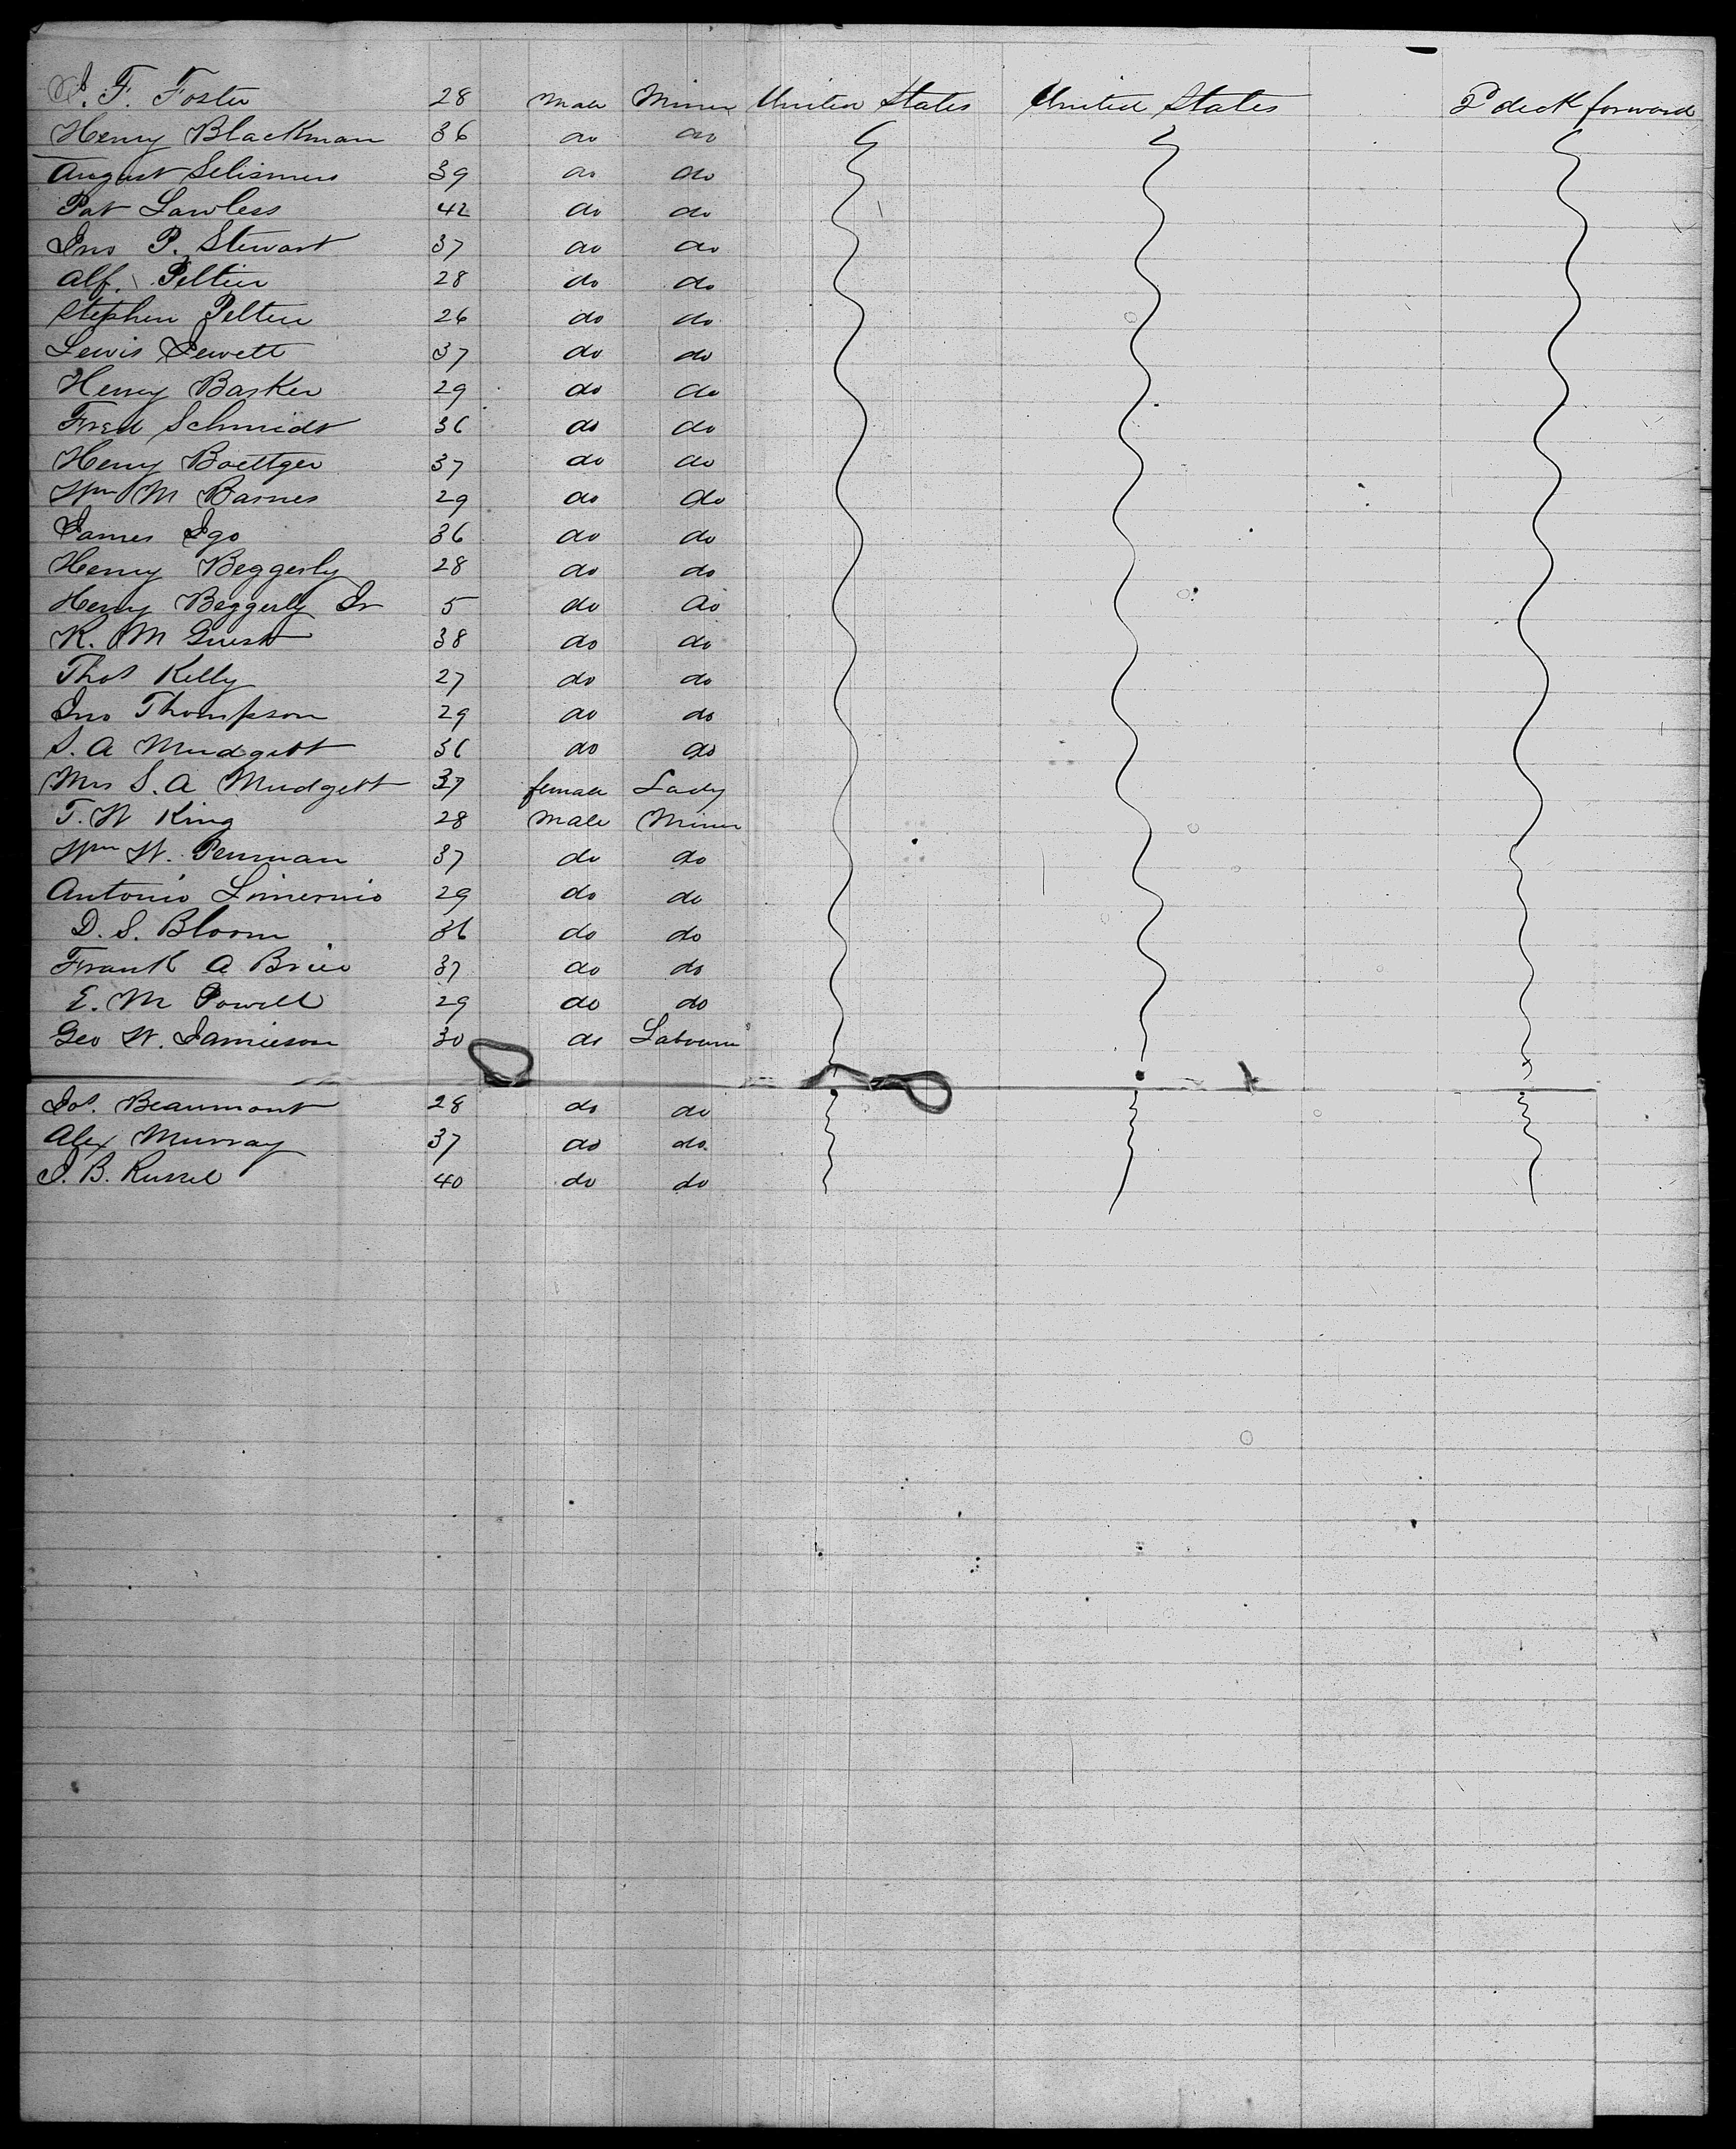 J. F. Foster 28 male Miner United States United States 2d deck forward
Henry Blackman 36 do do
August 39 do do
Pat Lawless 42 do do
Jno P. Stewart 37 do do
Alf. Peltier 28 do do
Stephen Peltier 26 do do
Lewis Jewett 37 do do
Henry Barker 29 do do
Fred Schmidt 36 do do
Henry Boettger 37 do do
Wm M Barnes 29 do do
James Igo 36 do do
Henry Beggerly 28 do do
Henry Beggerly Jr 5 do do
R. M Guest 38 do do
Thos Kelly 27 do do
Jno Thompson 29 do do
S. A Mudgett 36 do do
Mrs S. A Mudgett 37 female Lady
T. W King 28 male Miner
Wm W. Penman 37 do do
Antonio 29 do do
D. S. Bloom 36 do do
Frank A 37 do do
E. M Powell 29 do do
Geo W. Jamieson 30 do Labourer
Jos. Beaumont 28 do do
Alex Murray 37 do do.
J. B. Russel 40 do do